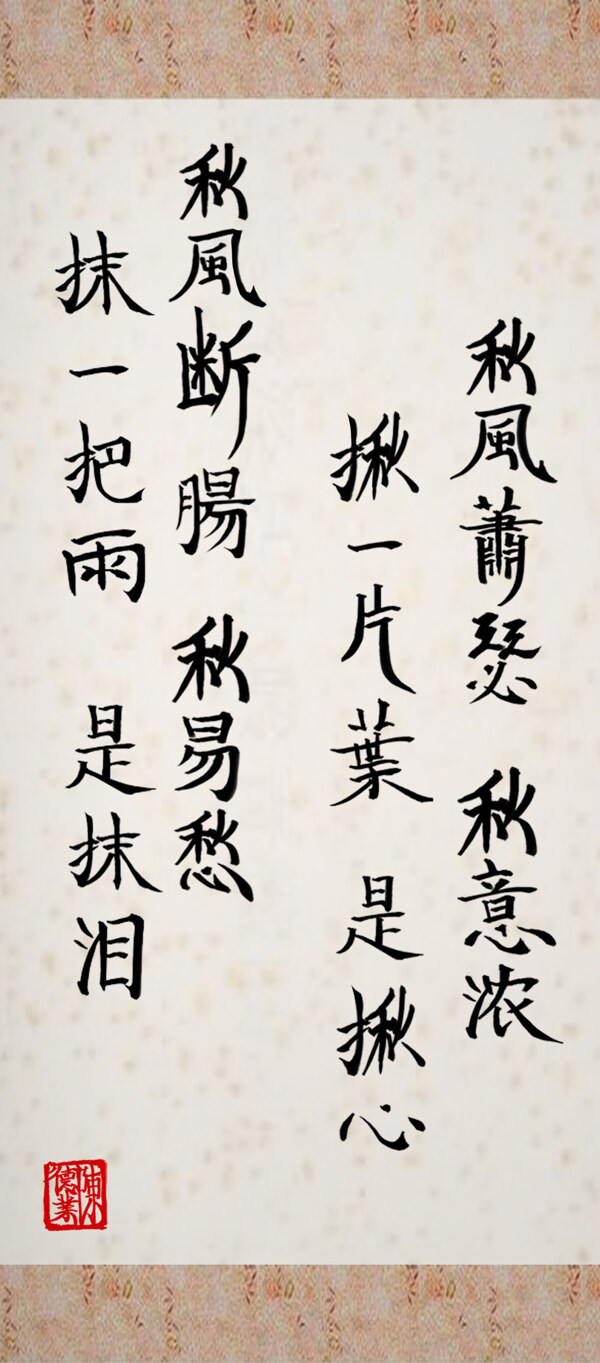 秋風蕭瑟 秋意浓
揪一片葉 是揪心
秋風断腸 秋易愁
抹一把雨 是抹泪
陳德業